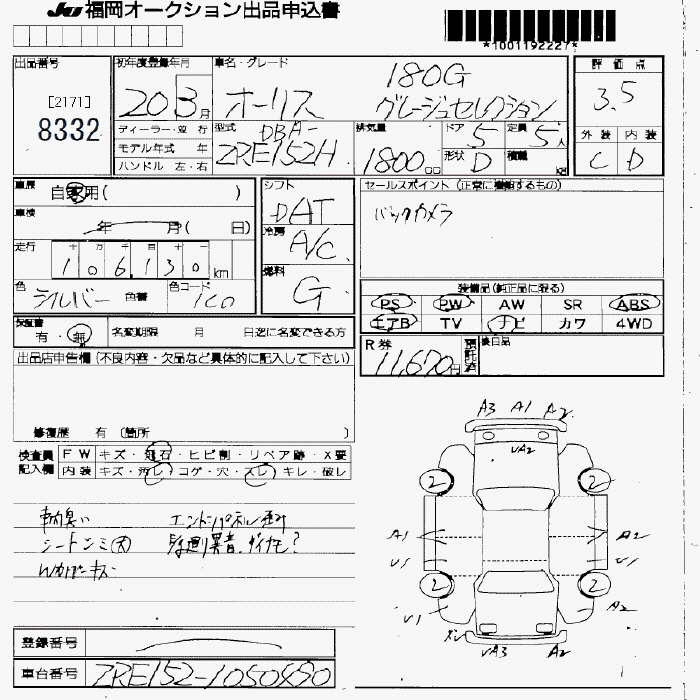 JU福岡オークション出品申込書
*1001192227*
出品番号 初年度登録年月 車名・グレード 評価点
[2171] 8332
20 3月 オーリス 180G
3.5
ディーラー・並行 型式 排気量 ドア 定員 外装 内装
モデル年式 年 DBA-ZRE152H 1800cc 5 5人 C D
ハンドル 左・右 形状 D 積載 kg
車歴 自家用( ) シフト セールスポイント(正常に機能するもの)
DAT バックカメラ
車検 年 月( 日) 冷房 A/C
走行 106,130km 燃料 G
色 シルバー 色番 色コード 1C0
装備品(純正品に限る)
PS PW AW SR ABS
エアB TV ナビ カワ 4WD
保証書 有・無 名変期限 月 日迄に名変できる方
R券 11,670円 預託済 後日品
出品店申告欄(不良内容・欠品など具体的に記入して下さい)
修復歴 有 〔箇所 〕
検査員 FW キズ・飛石・ヒビ割・リペア跡・X要
記入欄 内装 キズ・汚レ・コゲ・穴・スレ・キレ・破レ
A3 A1 A2
UA2
2 2
A1 A2
U1 U1
2 2
U1 A2
UA3 A2
車内臭い エンドパネル歪み
シートシミ大
登録番号
車台番号 ZRE152-1050490